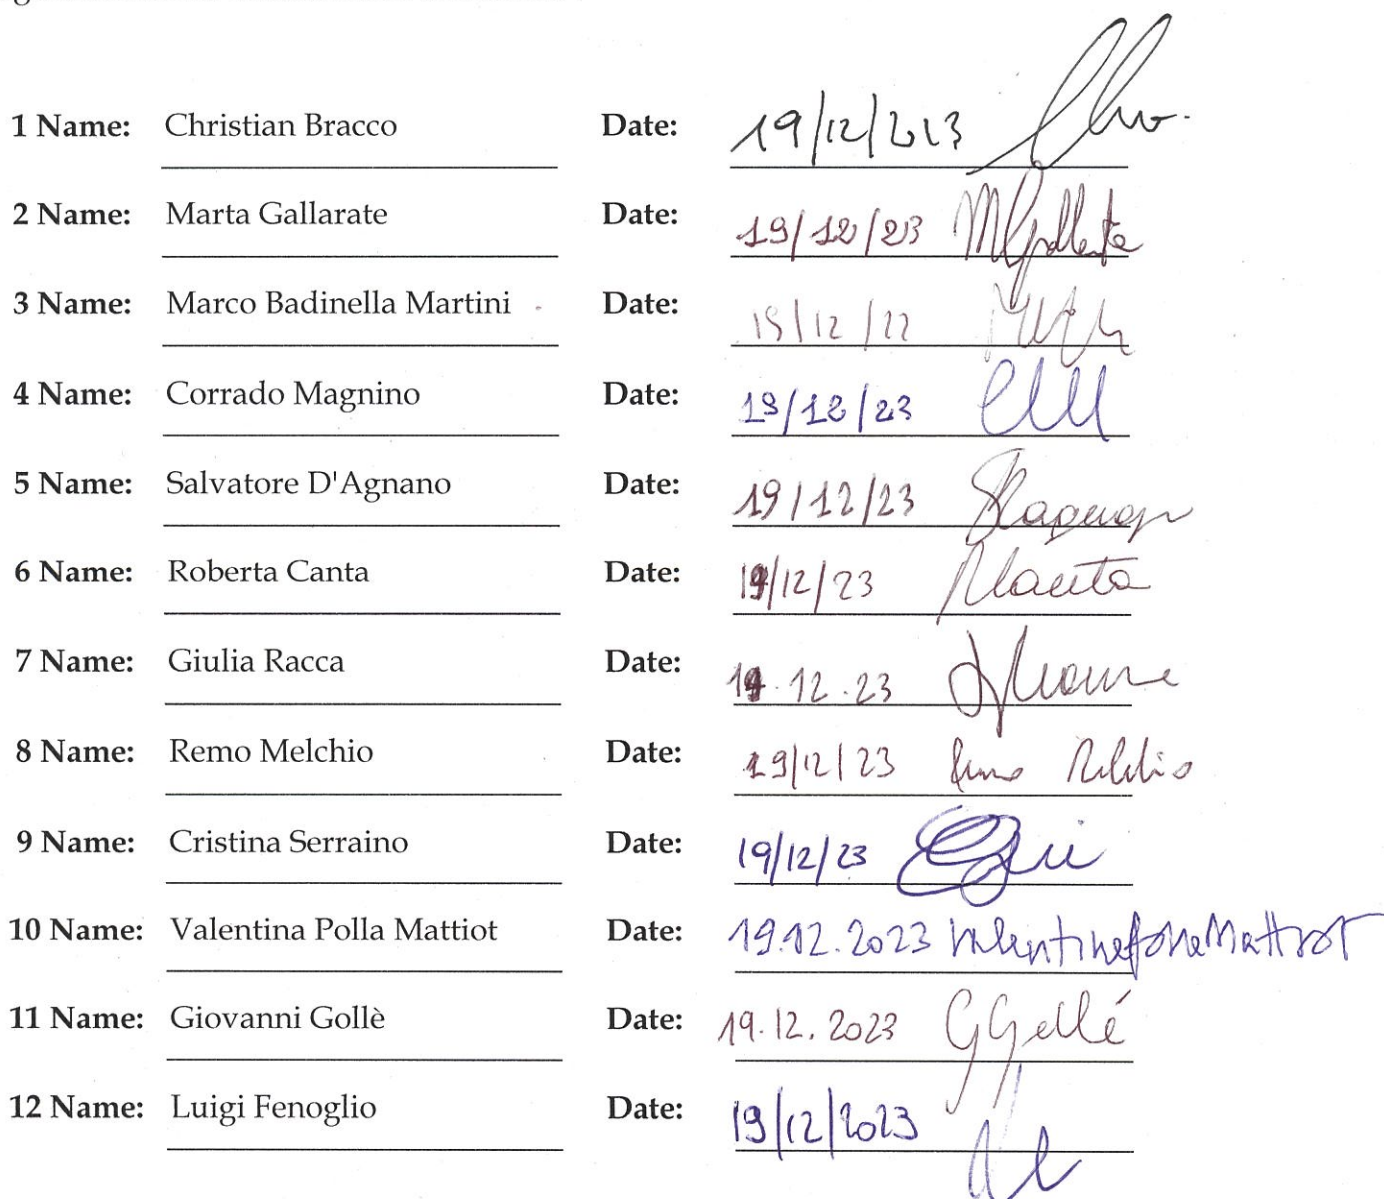 1 Name: Christian Bracco Date: 19/12/2023
2 Name: Marta Gallarate Date: 19/12/23 MGallarate
3 Name: Marco Badinella Martini Date: 19/12/22
4 Name: Corrado Magnino Date: 19/12/23
5 Name: Salvatore D'Agnano Date: 19/12/23
6 Name: Roberta Canta Date: 19/12/23 RCanta
7 Name: Giulia Racca Date: 19.12.23
8 Name: Remo Melchio Date: 19/12/23 Remo Melchio
9 Name: Cristina Serraino Date: 19/12/23
10 Name: Valentina Polla Mattiot Date: 19.12.2023 Valentina Polla Mattiot
11 Name: Giovanni Gollè Date: 19.12.2023 GGollé
12 Name: Luigi Fenoglio Date: 19/12/2023